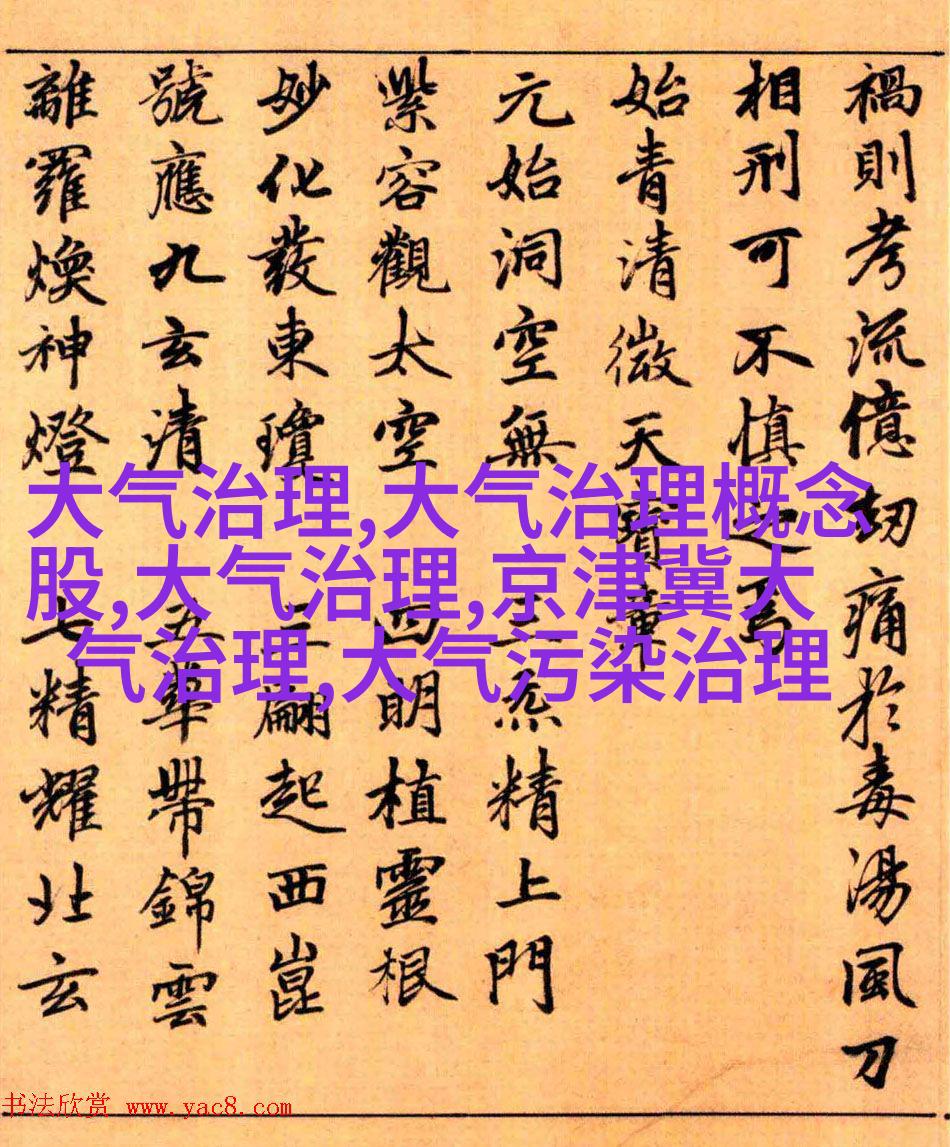 禍則考流億劫痛於毒湯風刀
相刑可不慎之焉
始青清微天寶章
元始洞空無 三炁精上門
紫容觀太空 明植靈根
妙化發東瓊 翮起西崑
號應九玄清 五華帶錦雲
離羅煥神燈 七精耀北玄
大气治理,大气治理概念
股,大气治理,京津冀大
气治理,大气污染治理
书法欣赏 www.yac8.com